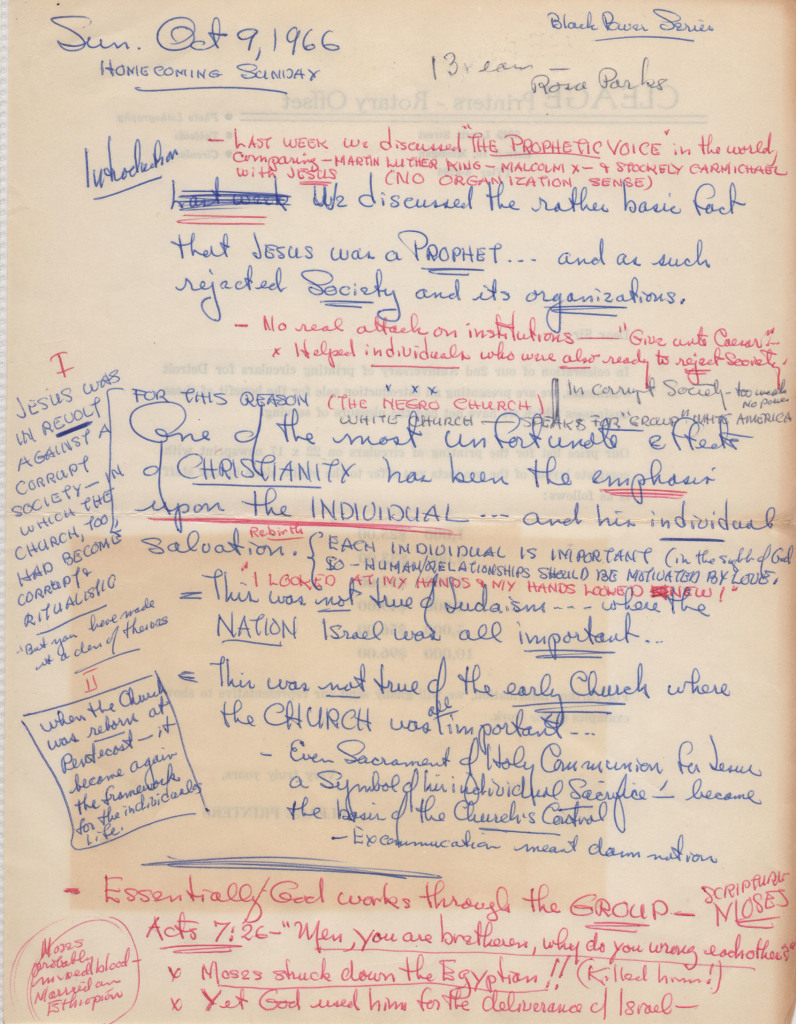 Black Power Series
Sun. Oct 9, 1966
HOMECOMING SUNDAY
Rosa Parks
CLEAGE Printers - Rotary Offset
Introduction
- LAST WEEK we discussed "THE PROPHETIC VOICE" in the world,
Comparing - MARTIN LUTHER KING - MALCOLM X - & STOCKELY CARMICHAEL
with JESUS (NO ORGANIZATION SENSE)
Last week We discussed the rather basic fact
that JESUS was a PROPHET... and as such
rejected Society and its organizations.
- No real attack on institutions - "Give unto Caesar"-
x Helped individuals who were also ready to reject Society.
In corrupt Society - too weak
no power
I
JESUS WAS
IN REVOLT
AGAINST A
CORRUPT
SOCIETY - IN
WHICH THE
CHURCH, TOO,
HAD BECOME
CORRUPT &
RITUALISTIC
"But you have made
it a den of thieves
FOR THIS REASON (THE NEGRO CHURCH)
x x x
WHITE CHURCH - SPEAKS FOR "GROUP" WHITE AMERICA
One of the most unfortunate effects
of CHRISTIANITY has been the emphasis
upon the INDIVIDUAL... and his individual
Salvation. Rebirth
{ EACH INDIVIDUAL IS IMPORTANT (in the sight of God
SO - HUMAN RELATIONSHIPS SHOULD BE MOTIVATED BY LOVE.
"I LOOKED AT MY HANDS & MY HANDS LOOKED NEW!"
= This was not true of Judaism --- where the
NATION Israel was all important...
= This was not true of the early Church where
the CHURCH was all important...
- Even Sacrament of Holy Communion for Jesus
a Symbol of his individual Sacrifice - became
the basis of the Church's Control
- Excommucation meant damnation
II
when the Church
was reborn at
Pentecost - it
became again
the framework
for the individuals
Life.
- Essentially God works through the GROUP - SCRIPTURE
MOSES
Acts 7:26 - "Men, you are bretheren, why do you wrong each other?"
x Moses struck down the Egyptian!! (Killed him!)
x Yet God used him for the deliverance of Israel -
Moses
probably
mixed blood -
Married an
Ethiopian